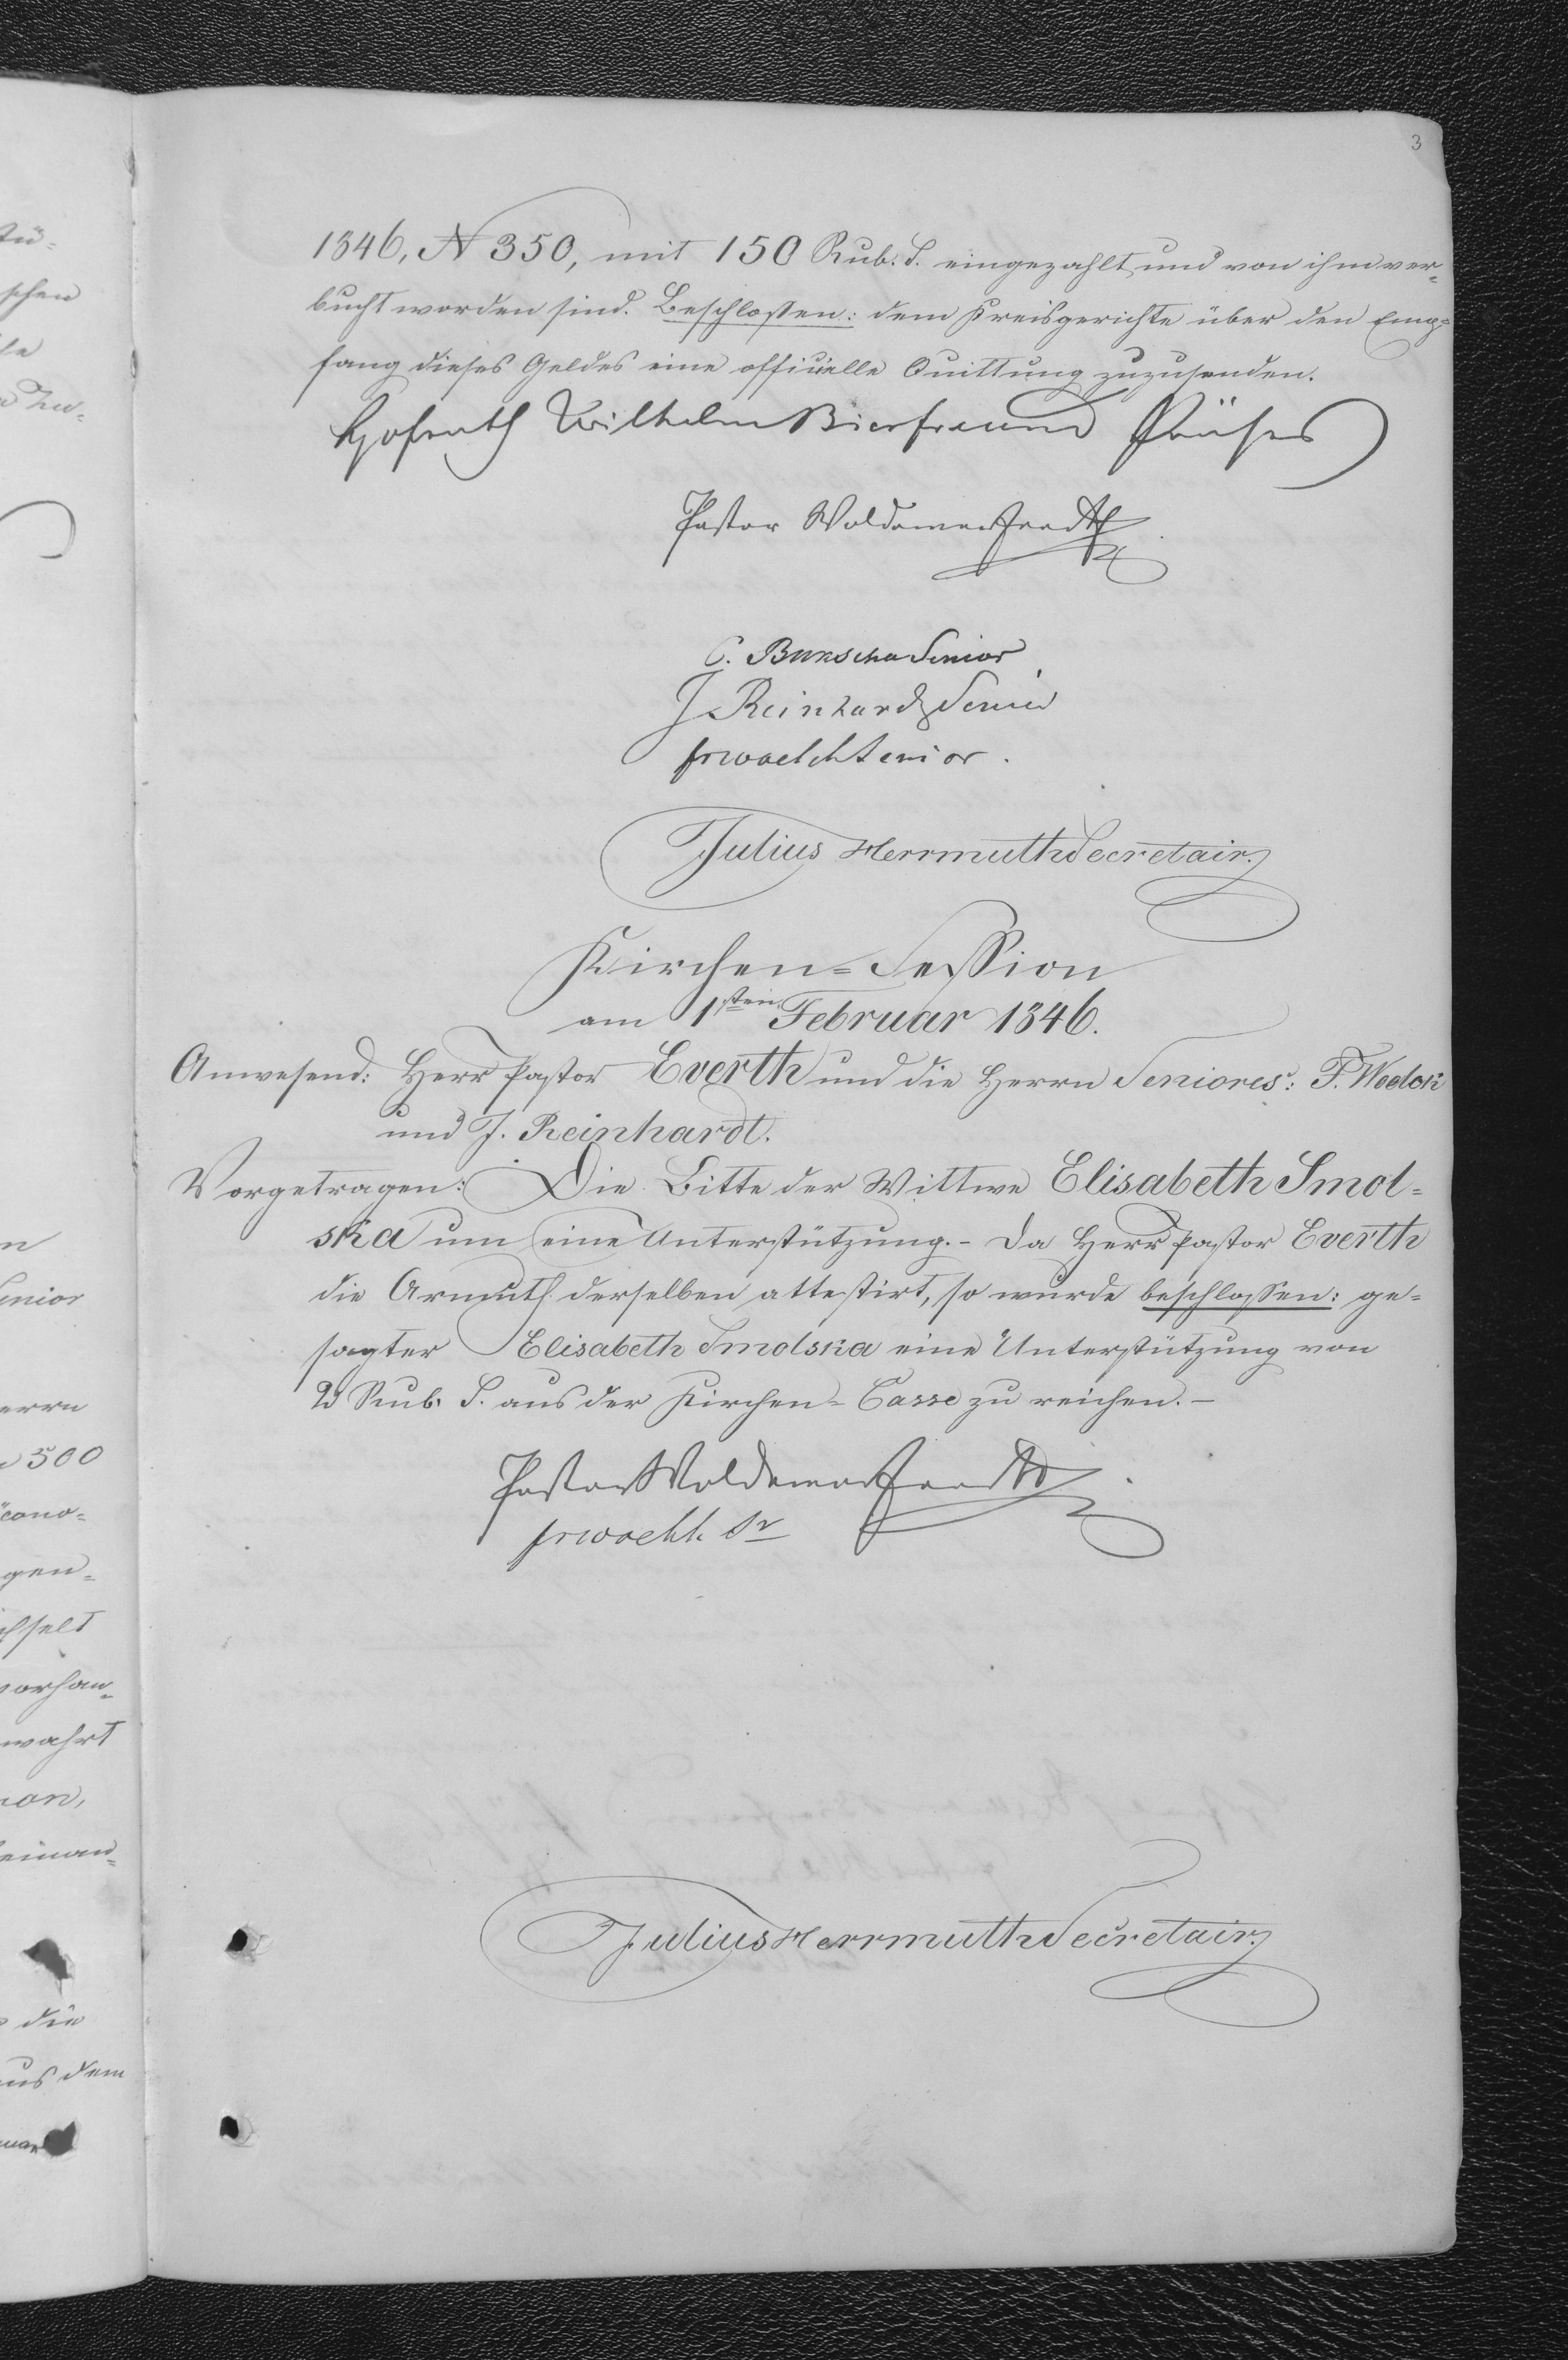 3
1846, N 350, mit 150 Rub. S. eingezahlt und von ihm ver-
bucht worden sind. Beschlossen: dem Kreisgerichte über den Emp-
fang dieses Geldes eine officielle Quittung zuzusenden.
Hofrath Wilhelm Bierfreund Präses
Pastor Woldemar Everth
C. Senior
J Reinhardt Senior
Senior.
Julius Herrmuth Secretair.
Kirchen-Session
am 1sten Februar 1846.
Anwesend: Herr Pastor Everth und die Herrn Seniores: F. Woelck
und J. Reinhardt.
Vorgetragen: Die Bitte der Wittwe Elisabeth Smol-
ska um eine Unterstützung. - Da Herr Pastor Everth
die Armuth derselben attestirt, so wurde beschlossen: ge-
sagter Elisabeth Smolska eine Unterstützung von
2 Rub. S. aus der Kirchen-Casse zu reichen. -
Pastor Woldemar Everth
Julius Herrmuth Secretair.